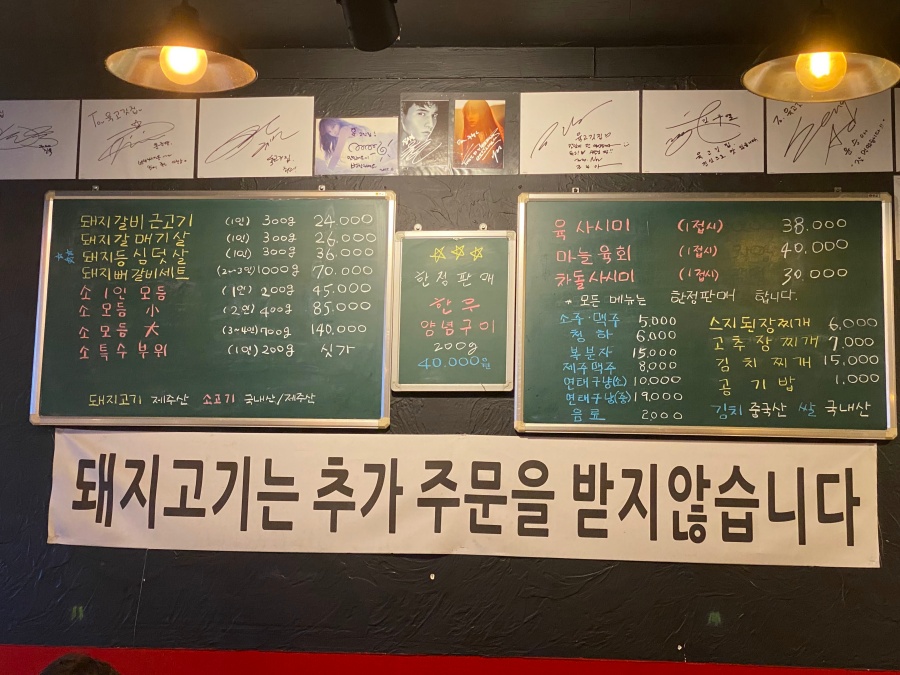 To. 육고깃집
돼지갈비 근고기 (1인) 300g 24.000
돼지갈매기살 (1인) 300g 26.000
돼지등심덧살 (1인) 300g 36.000
돼지뼈갈비세트 (2~3인) 1000g 70.000
소 1인 모듬 (1인) 200g 45.000
소 모듬 小 (2인) 400g 85.000
소 모듬 大 (3~4인) 700g 140.000
소 특수부위 (1인) 200g 싯가
돼지고기 제주산 소고기 국내산/제주산
한정판매
한우
양념구이
200g
40.000원
육 사시미 (1접시) 38.000
마늘 육회 (1접시) 40.000
차돌사시미 (1접시) 30.000
모든 메뉴는 한정판매 합니다.
소주·맥주 5,000
청하 6.000
복분자 15,000
제주맥주 8,000
연태구냥(소) 10,000
연태구냥(중) 19,000
음료 2000
스지된장찌개 6,000
고추장찌개 7,000
김치찌개 15,000
공기밥 1,000
김치 중국산 쌀 국내산
돼지고기는 추가 주문을 받지않습니다